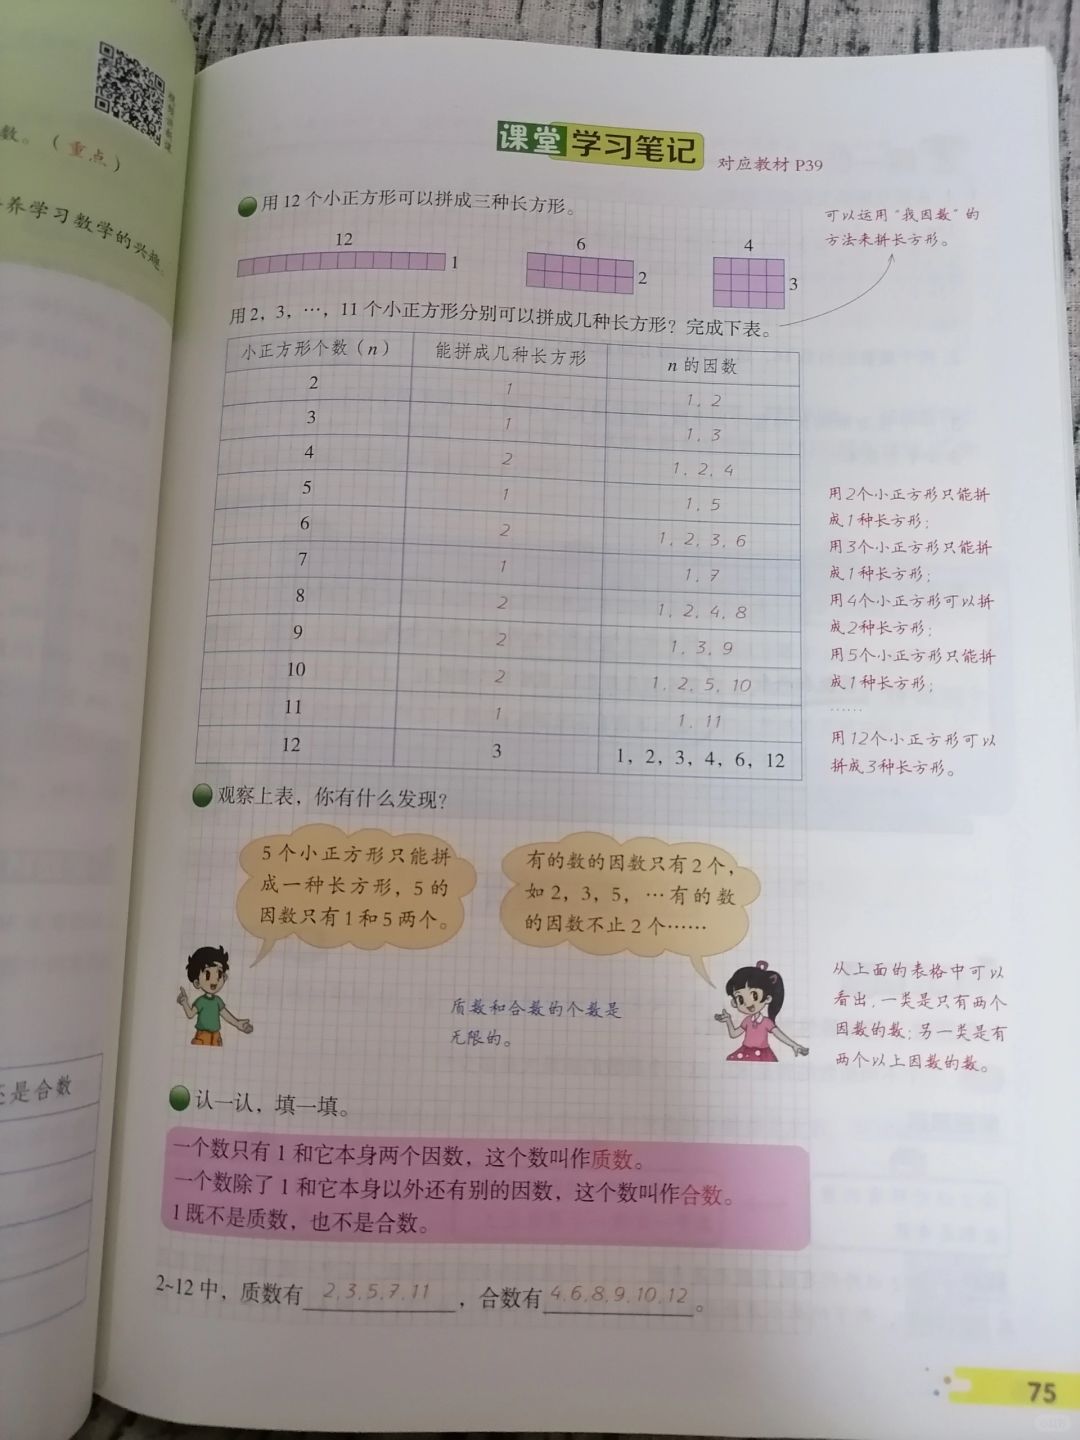 数。（重点）
养学习数学的兴趣。
还是合数
课堂 学习笔记 对应教材 P39
用 12 个小正方形可以拼成三种长方形。
可以运用“找因数”的
方法来拼长方形。
12
1
6
2
4
3
用 2，3，…，11 个小正方形分别可以拼成几种长方形？完成下表。
小正方形个数（n） 能拼成几种长方形 n 的因数
2 1 1, 2
3 1 1, 3
4 2 1, 2, 4
5 1 1, 5
6 2 1, 2, 3, 6
7 1 1, 7
8 2 1, 2, 4, 8
9 2 1, 3, 9
10 2 1, 2, 5, 10
11 1 1, 11
12 3 1，2，3，4，6，12
用2个小正方形只能拼
成1种长方形；
用3个小正方形只能拼
成1种长方形；
用4个小正方形可以拼
成2种长方形；
用5个小正方形只能拼
成1种长方形；
……
用12个小正方形可以
拼成3种长方形。
观察上表，你有什么发现？
5 个小正方形只能拼
成一种长方形，5 的
因数只有 1 和 5 两个。
有的数的因数只有 2 个，
如 2，3，5，…有的数
的因数不止 2 个……
质数和合数的个数是
无限的。
从上面的表格中可以
看出，一类是只有两个
因数的数；另一类是有
两个以上因数的数。
认一认，填一填。
一个数只有 1 和它本身两个因数，这个数叫作质数。
一个数除了 1 和它本身以外还有别的因数，这个数叫作合数。
1 既不是质数，也不是合数。
2~12 中，质数有2,3,5,7,11，合数有4,6,8,9,10,12。
75